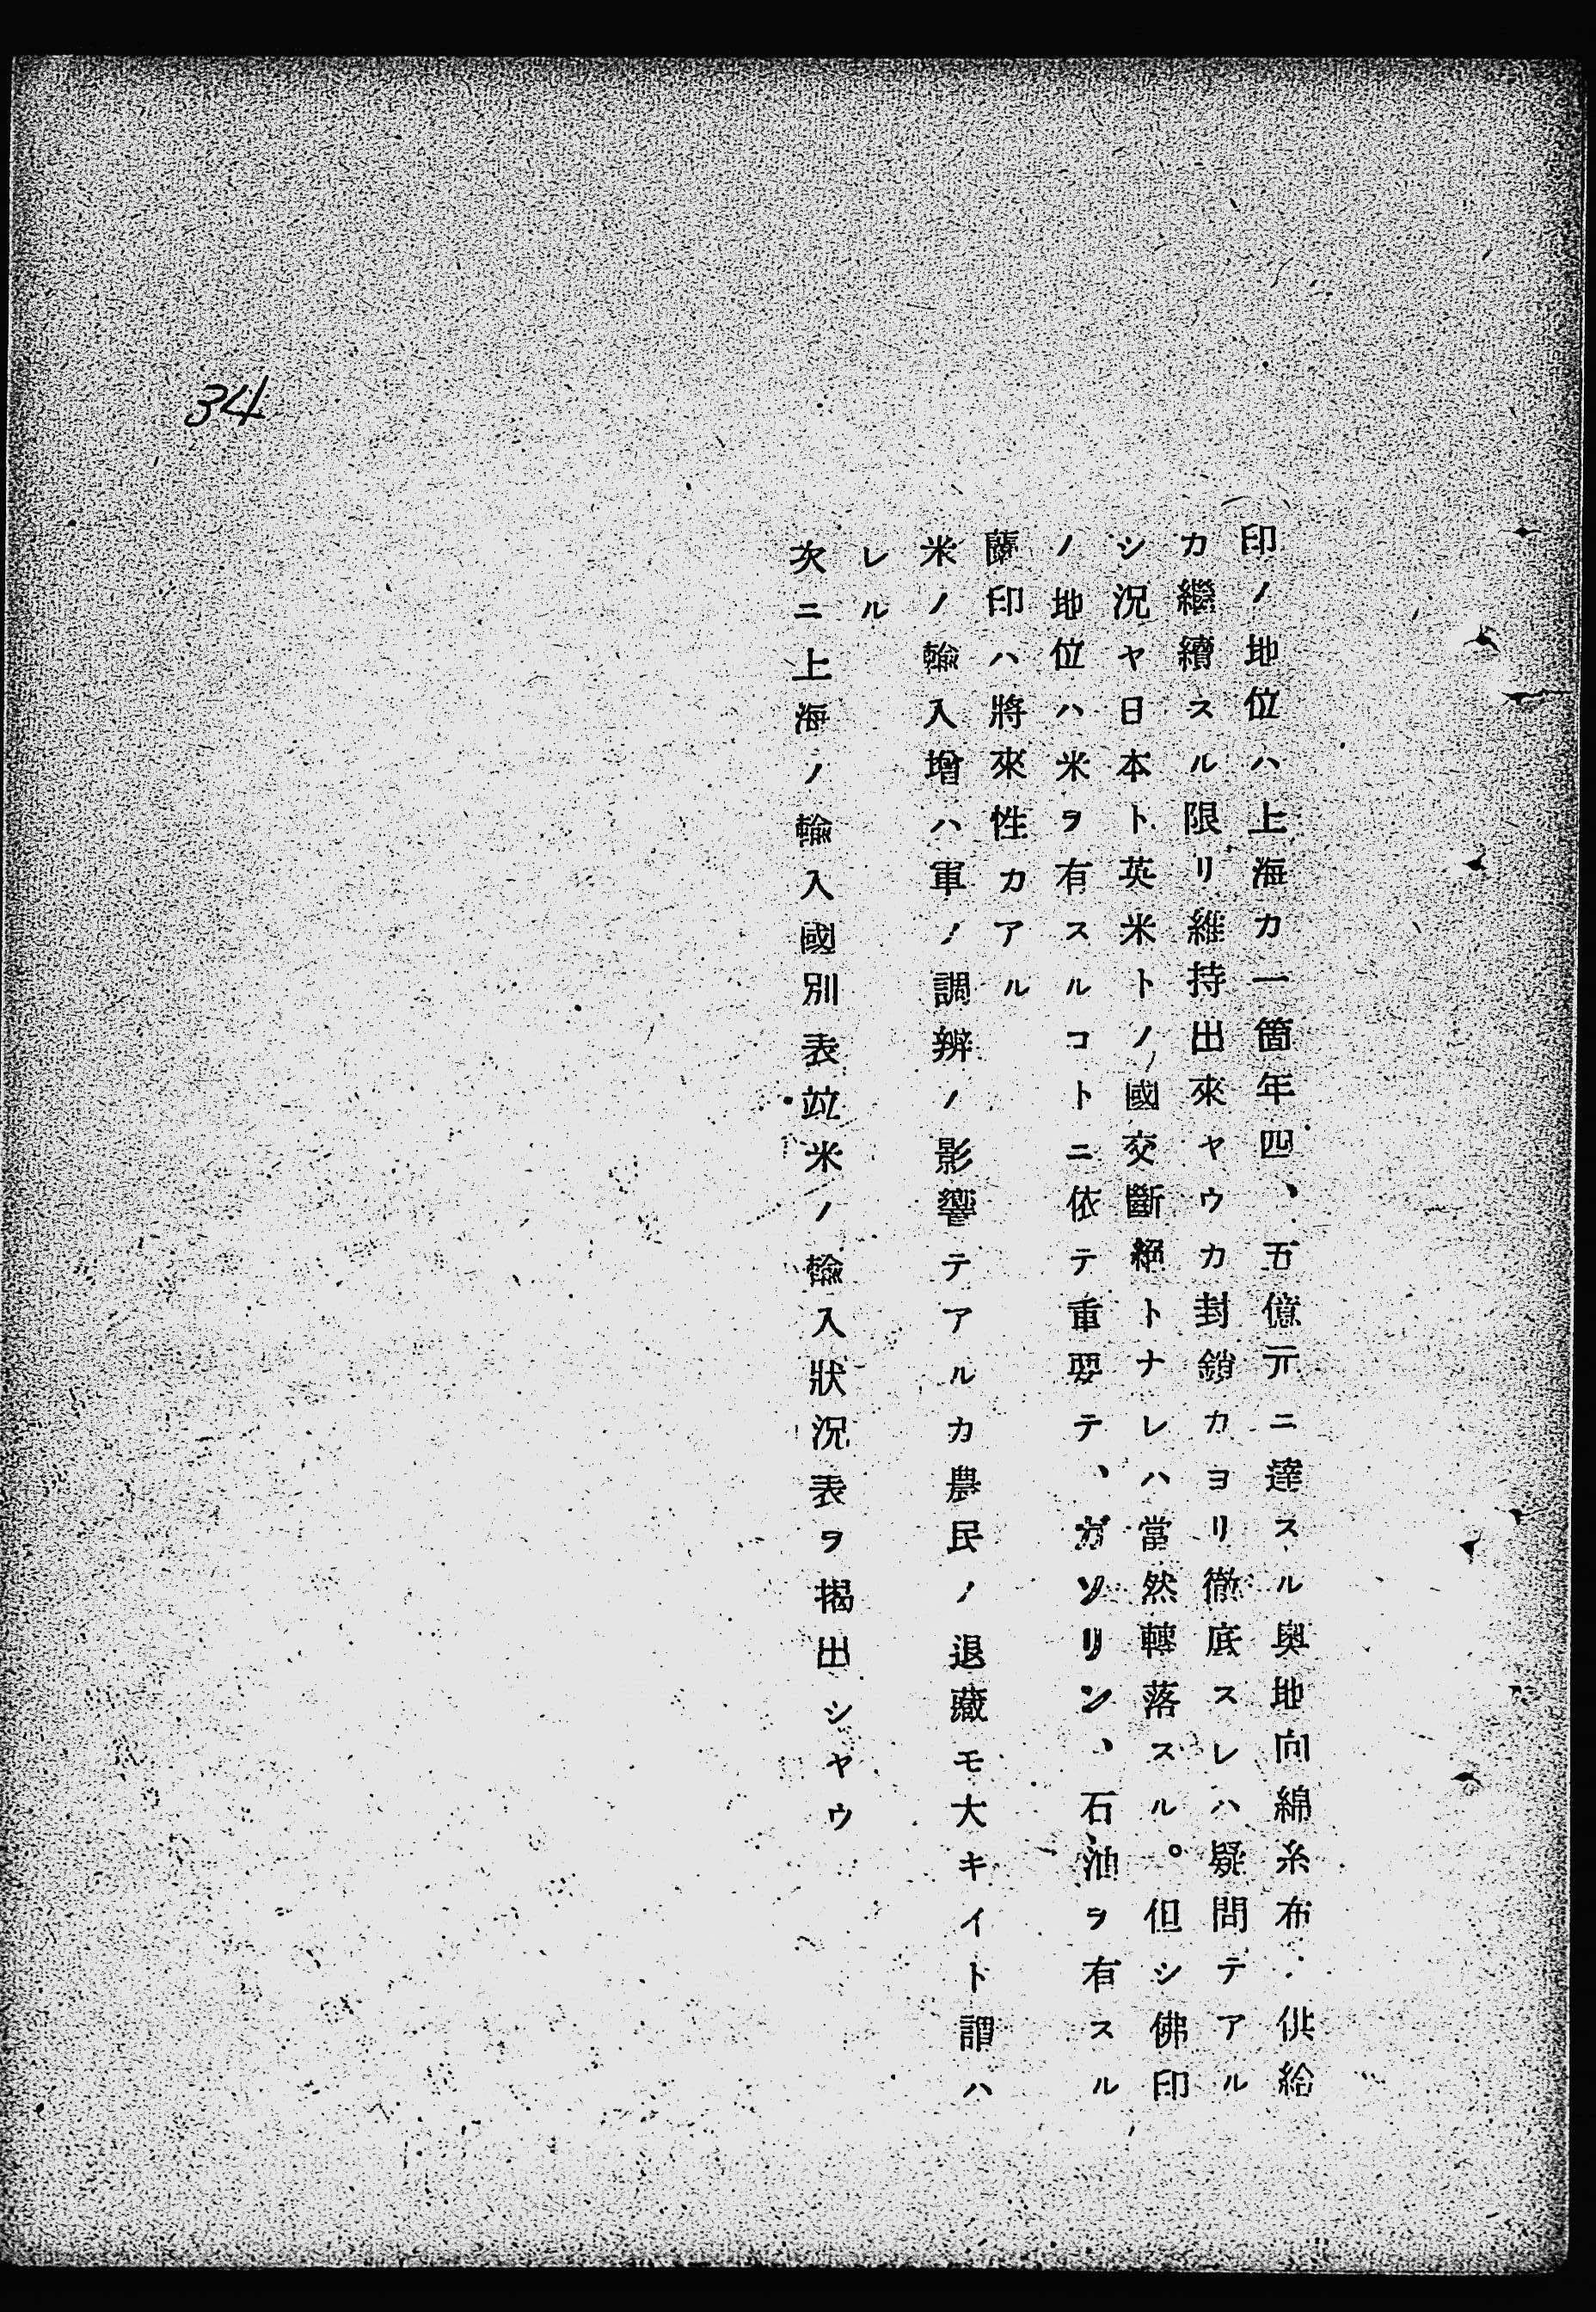 印ノ地位ハ上海カ一箇年四、五億元ニ達スル奥地向綿糸布ノ供給
カ繼續スル限リ維持出來ヤウカ封鎖カヨリ徹底スレハ疑問テアル
シ況ヤ日本ト英米トノ國交斷絕トナレハ當然轉落スル。但シ佛印
ノ地位ハ米ヲ有スルコトニ依テ重要テ、ガソリン、石油ヲ有スル
蘭印ハ將來性カアル
米ノ輸入增ハ軍ノ調辨ノ影響テアルカ農民ノ退藏モ大キイト謂ハ
レル
次ニ上海ノ輸入國別表竝米ノ輸入狀況表ヲ揭出シヤウ
34